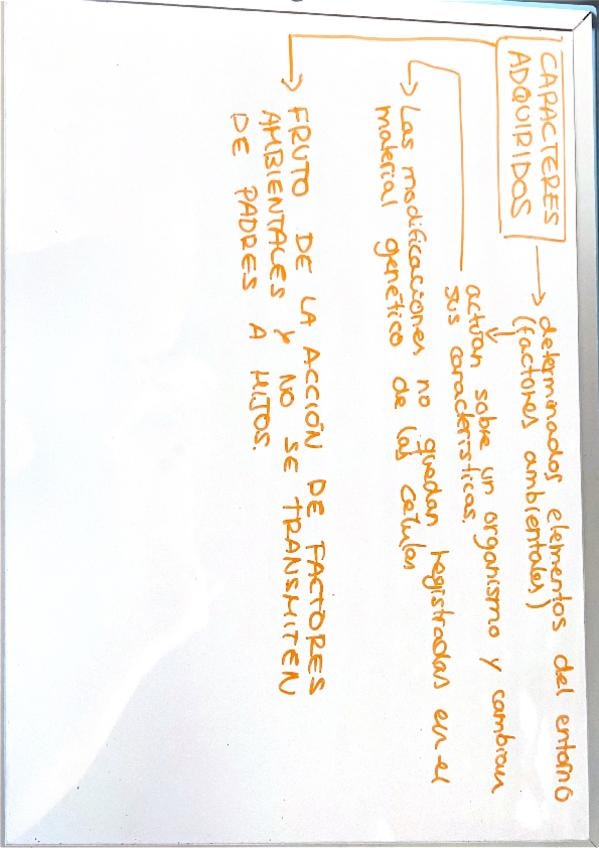 CARACTERES
ADQUIRIDOS
determinados elementos del entorno
(factores ambientales)
actúan sobre un organismo y cambian
sus características.
Las modificaciones no quedan registradas en el
material genético de las células
FRUTO DE LA ACCIÓN DE FACTORES
AMBIENTALES Y NO SE TRANSMITEN
DE PADRES A HIJOS.